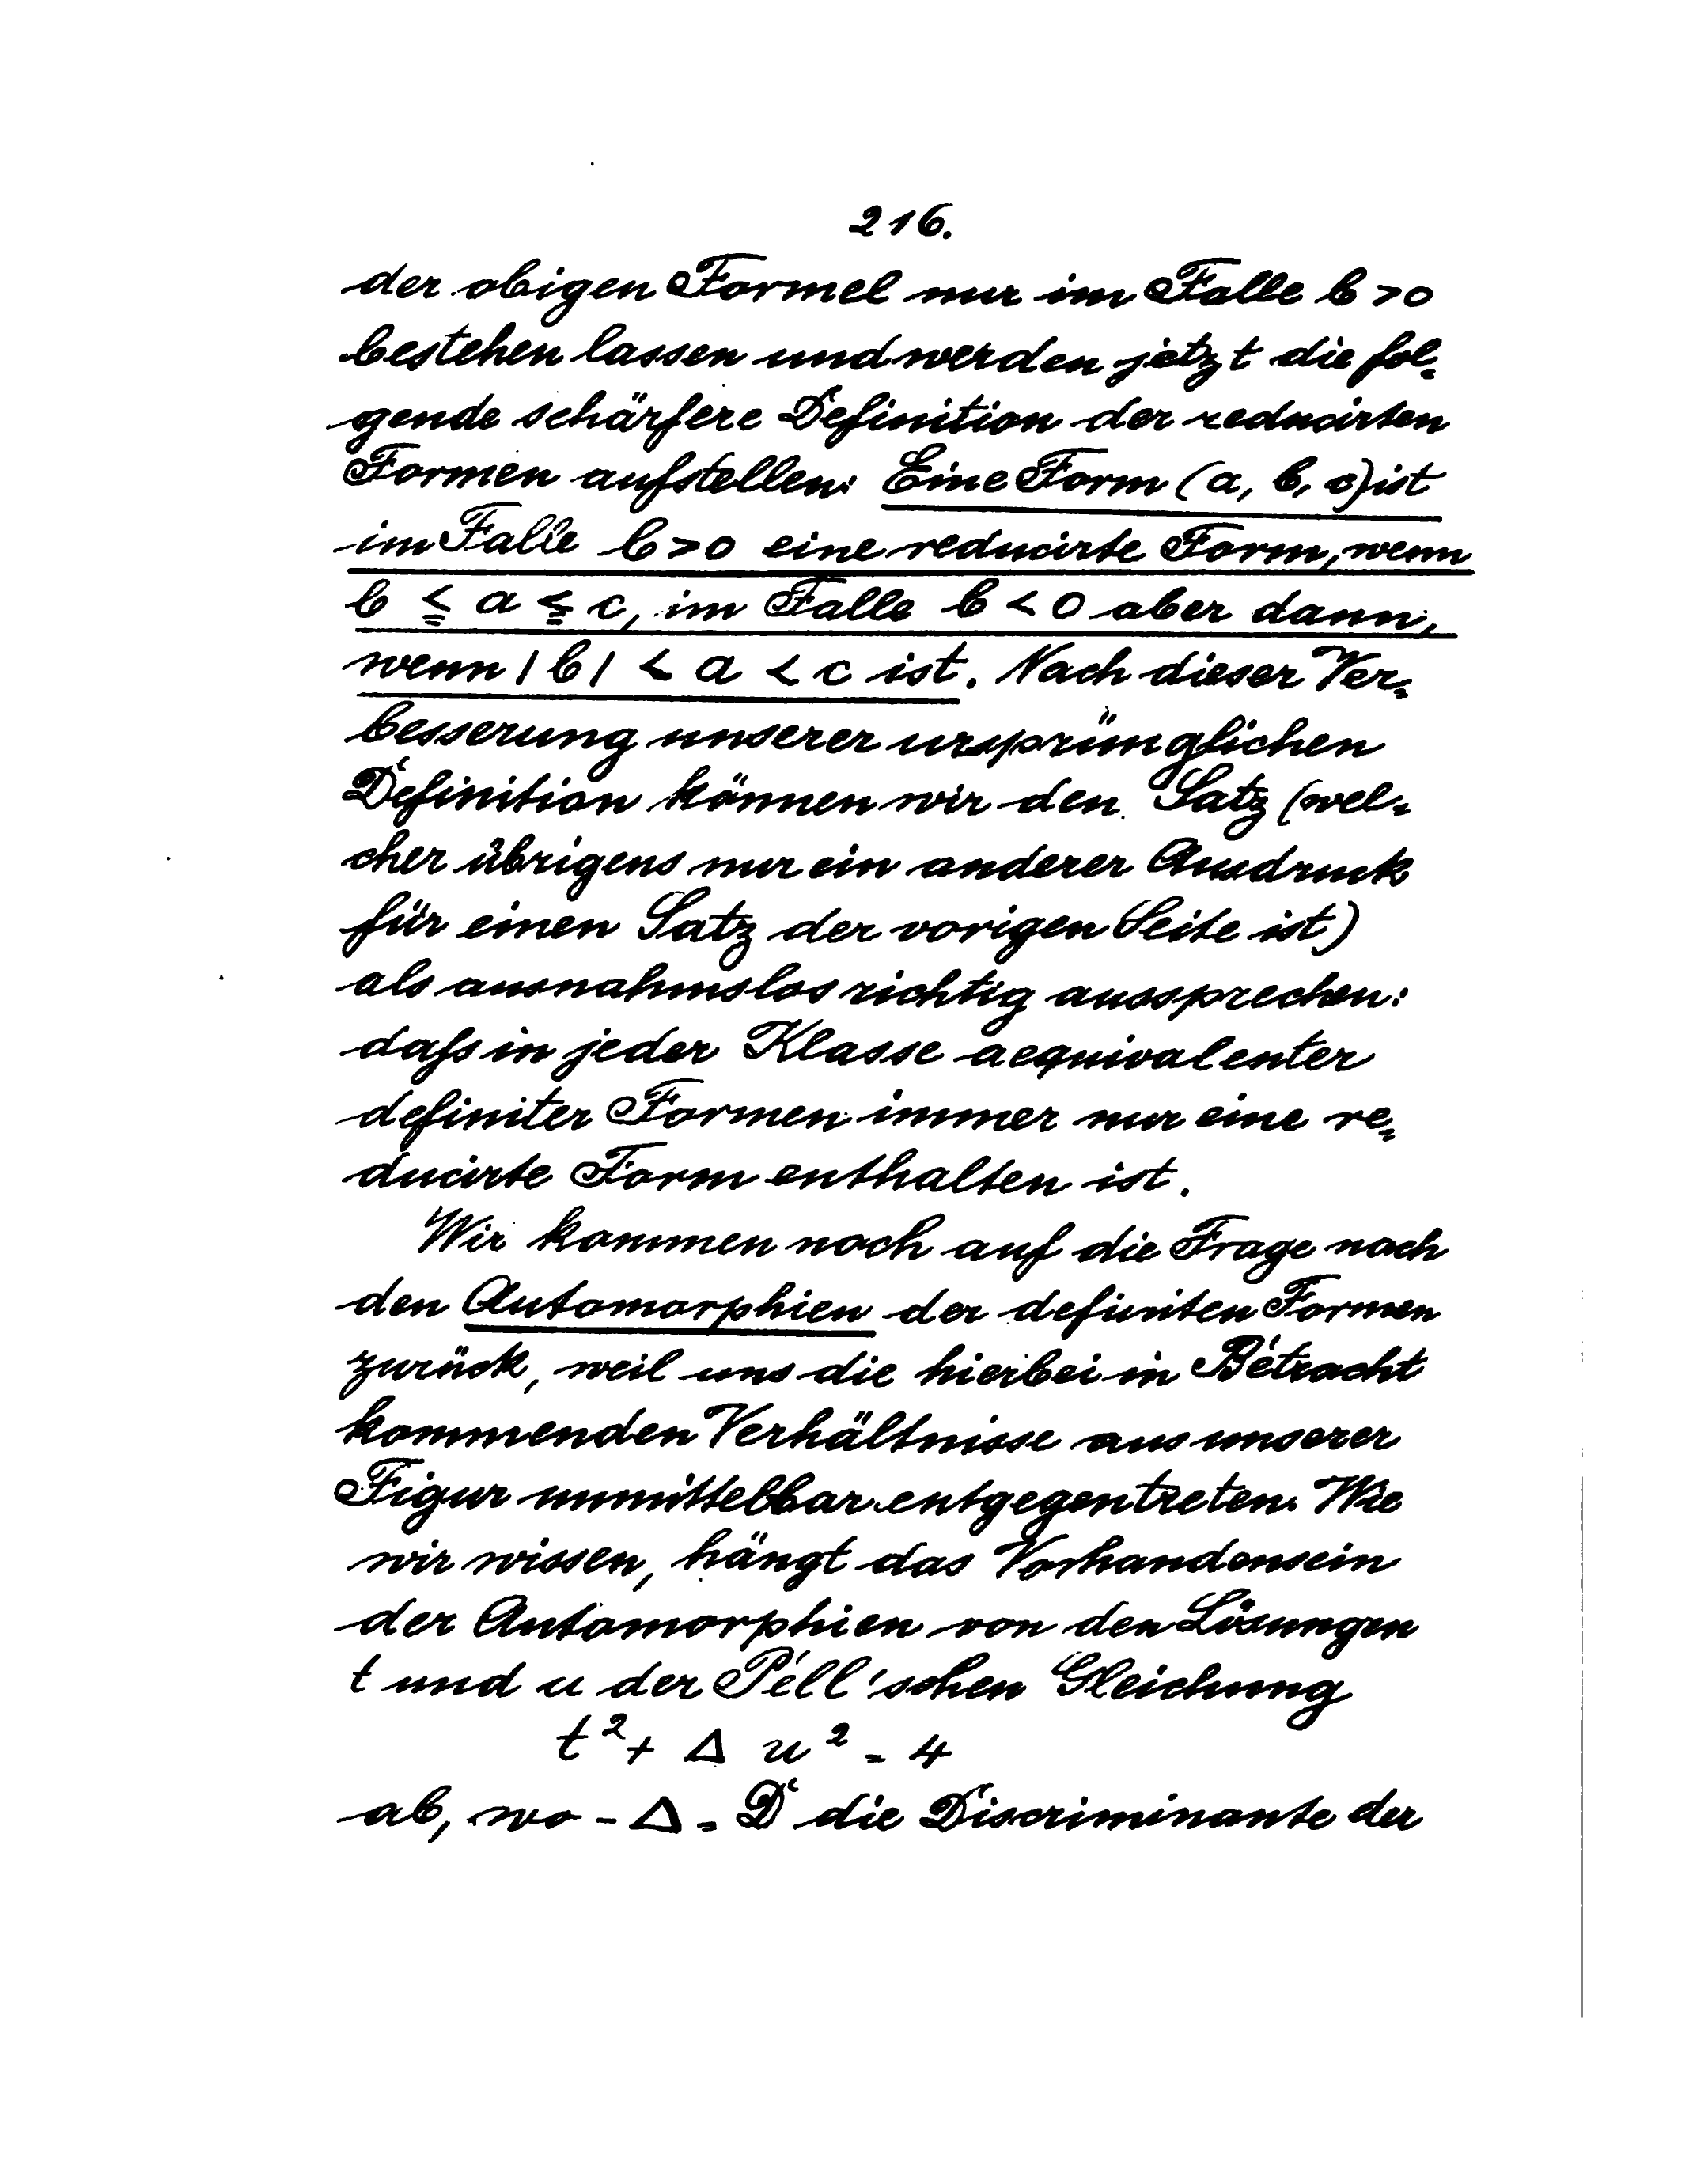 216.
der obigen Formel nur im Falle b > 0
bestehen lassen und werden jetzt die fol-
gende schärfere Definition der reducirten
Formen aufstellen: Eine Form (a, b, c) ist
im Falle b > 0 eine reducirte Form, wenn
b ≦ a ≦ c, im Falle b < 0 aber dann,
wenn | b | < a < c ist. Nach dieser Ver-
besserung unserer ursprünglichen
Definition können wir den Satz (wel-
cher übrigens nur ein anderer Ausdruck
für einen Satz der vorigen Seite ist)
als ausnahmslos richtig aussprechen:
dass in jeder Klasse aequivalenter
definiter Formen immer nur eine re-
ducirte Form enthalten ist.
Wir kommen noch auf die Frage nach
den Automorphien der definiten Formen
zurück, weil uns die hierbei in Betracht
kommenden Verhältnisse aus unserer
Figur unmittelbar entgegentreten. Wie
wir wissen, hängt das Vorhandensein
der Automorphien von den Lösungen
t und u der Pell'schen Gleichung
t² + Δ u² = 4
ab, wo - Δ = D die Discriminante der